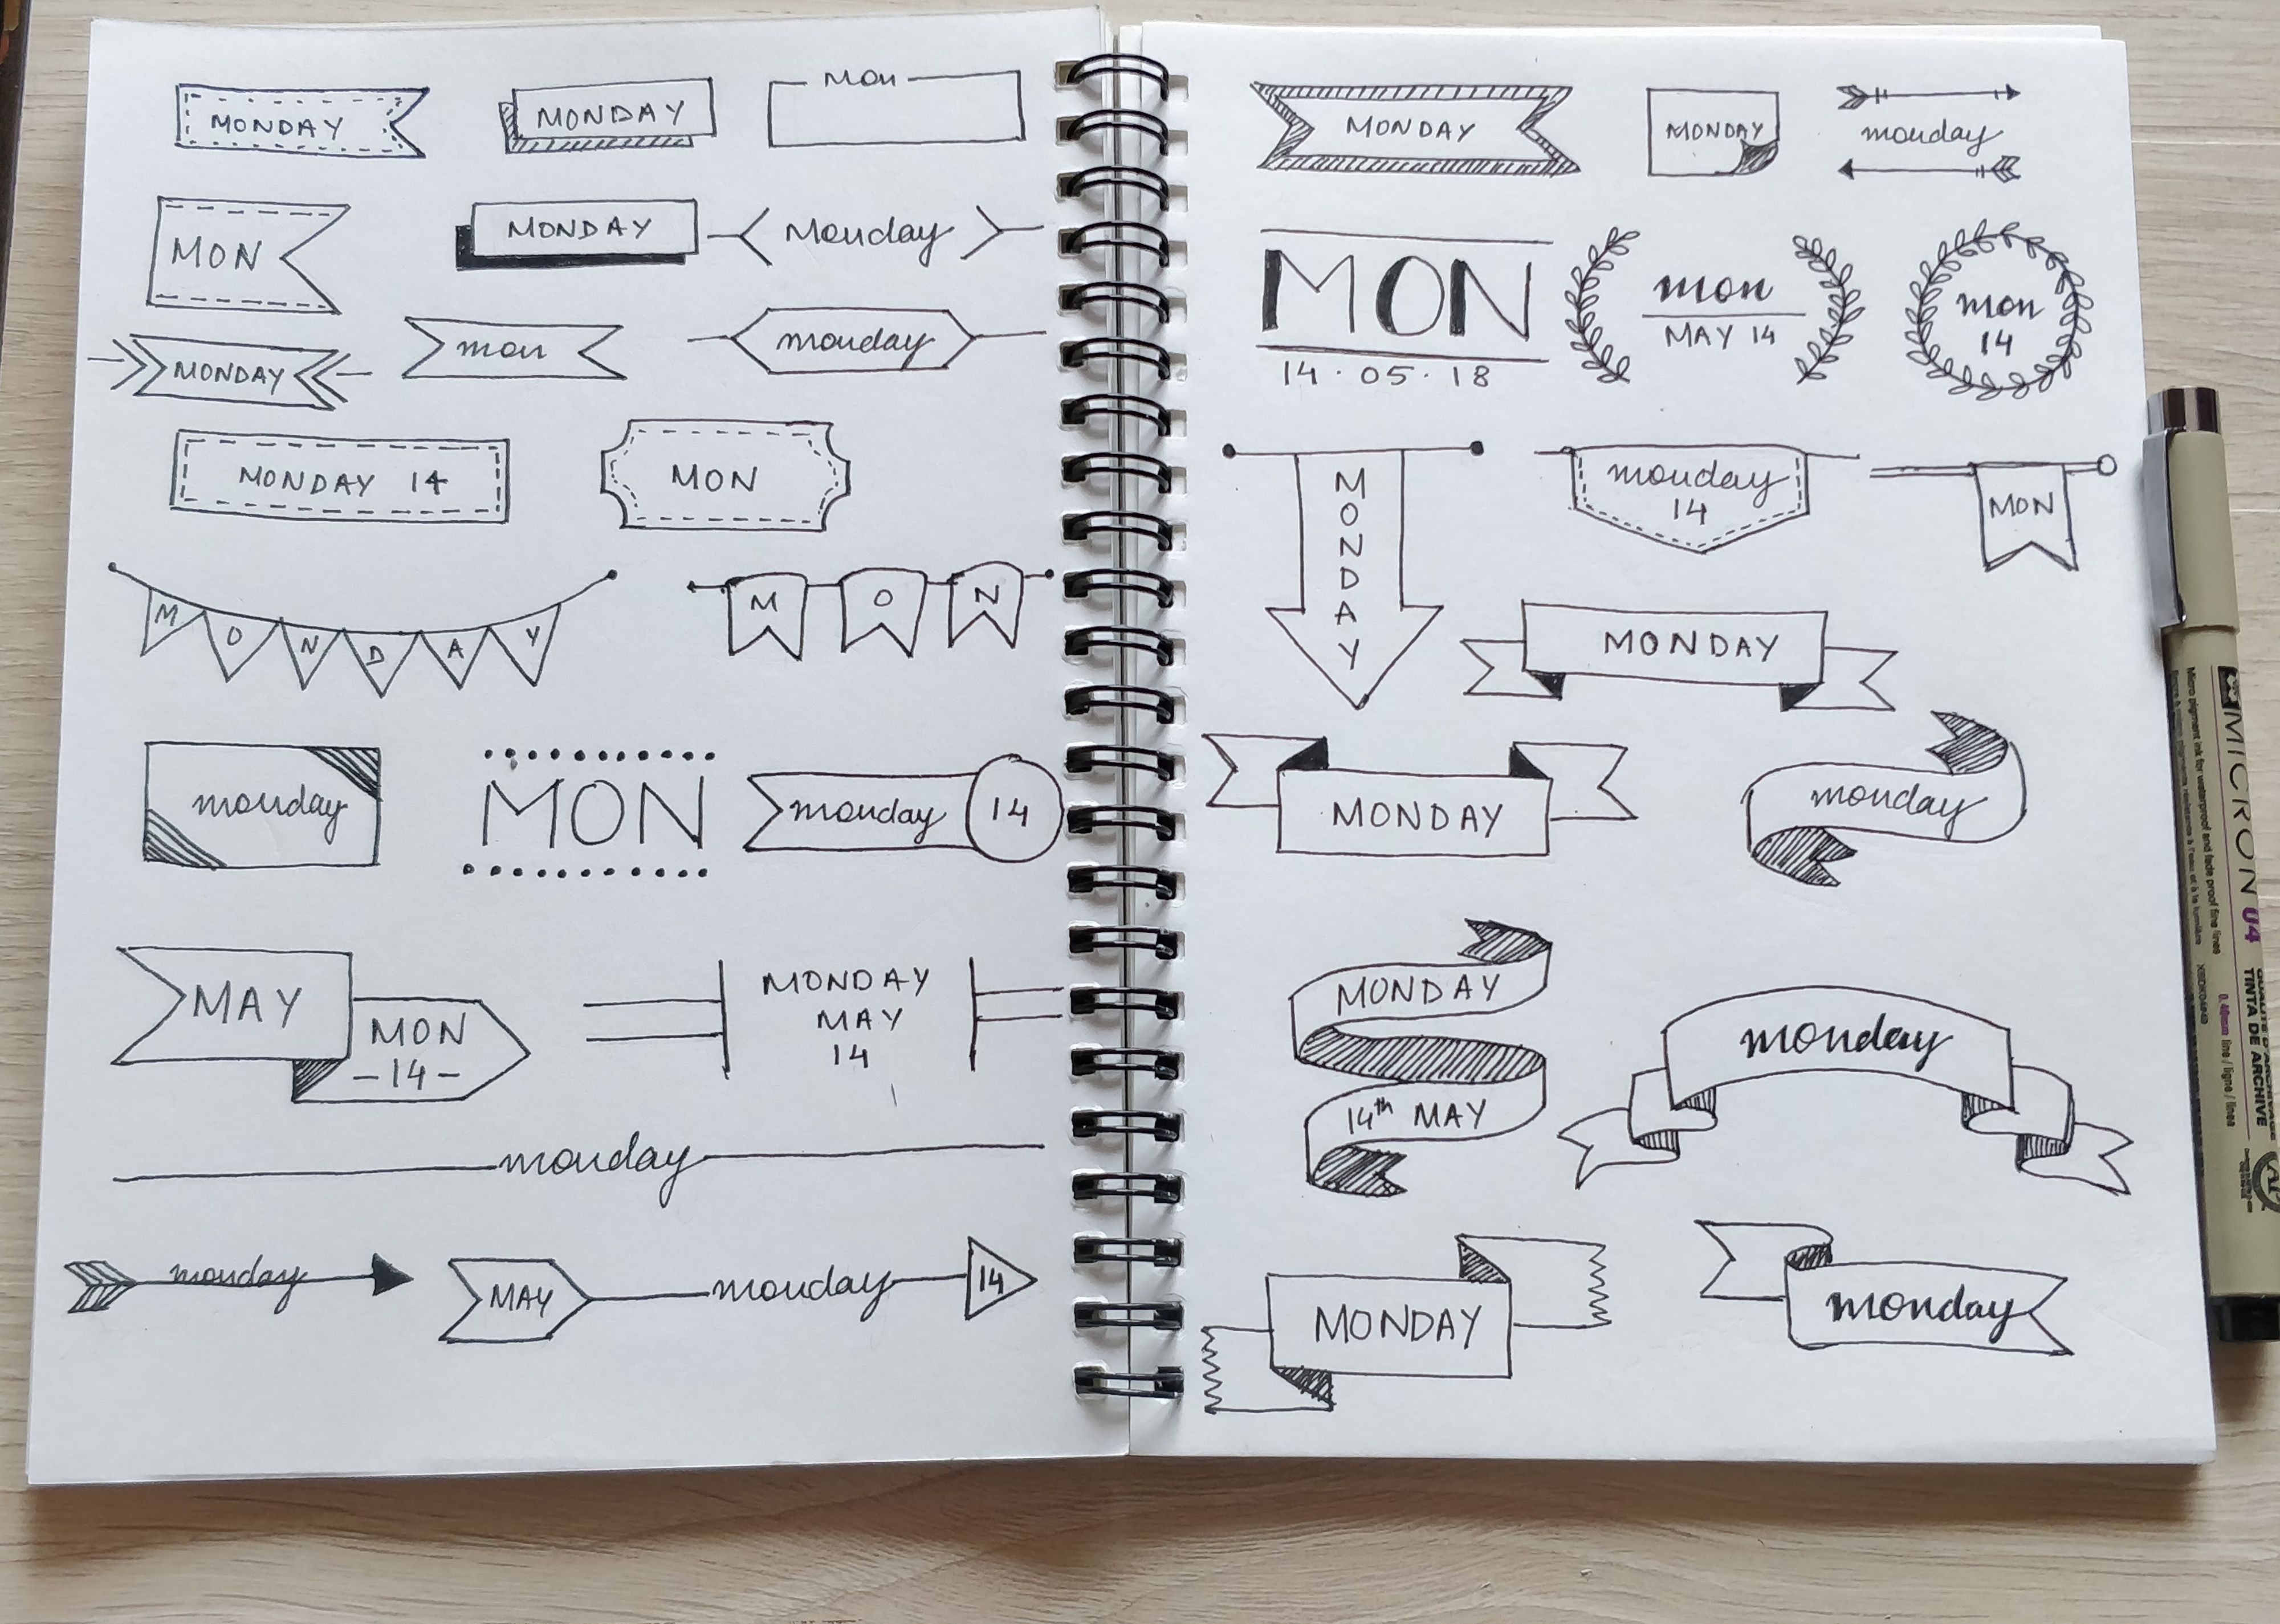 MONDAY
MONDAY
Mon
MON
MONDAY
Monday
MONDAY
mon
monday
MONDAY 14
MON
MONDAY
MON
monday
MON
monday 14
MAY
MON
-14-
MONDAY
MAY
14
monday
monday
MAY monday 14
MONDAY
MONDAY
monday
MON
14·05·18
mon
MAY 14
mon
14
MONDAY
monday
14
MON
MONDAY
MONDAY
monday
MONDAY
14th MAY
monday
MONDAY
monday
MICRON 04
Micro pigment ink for waterproof and fade proof fine lines
0.40mm line / ligne / linea
TINTA DE ARCHIVE